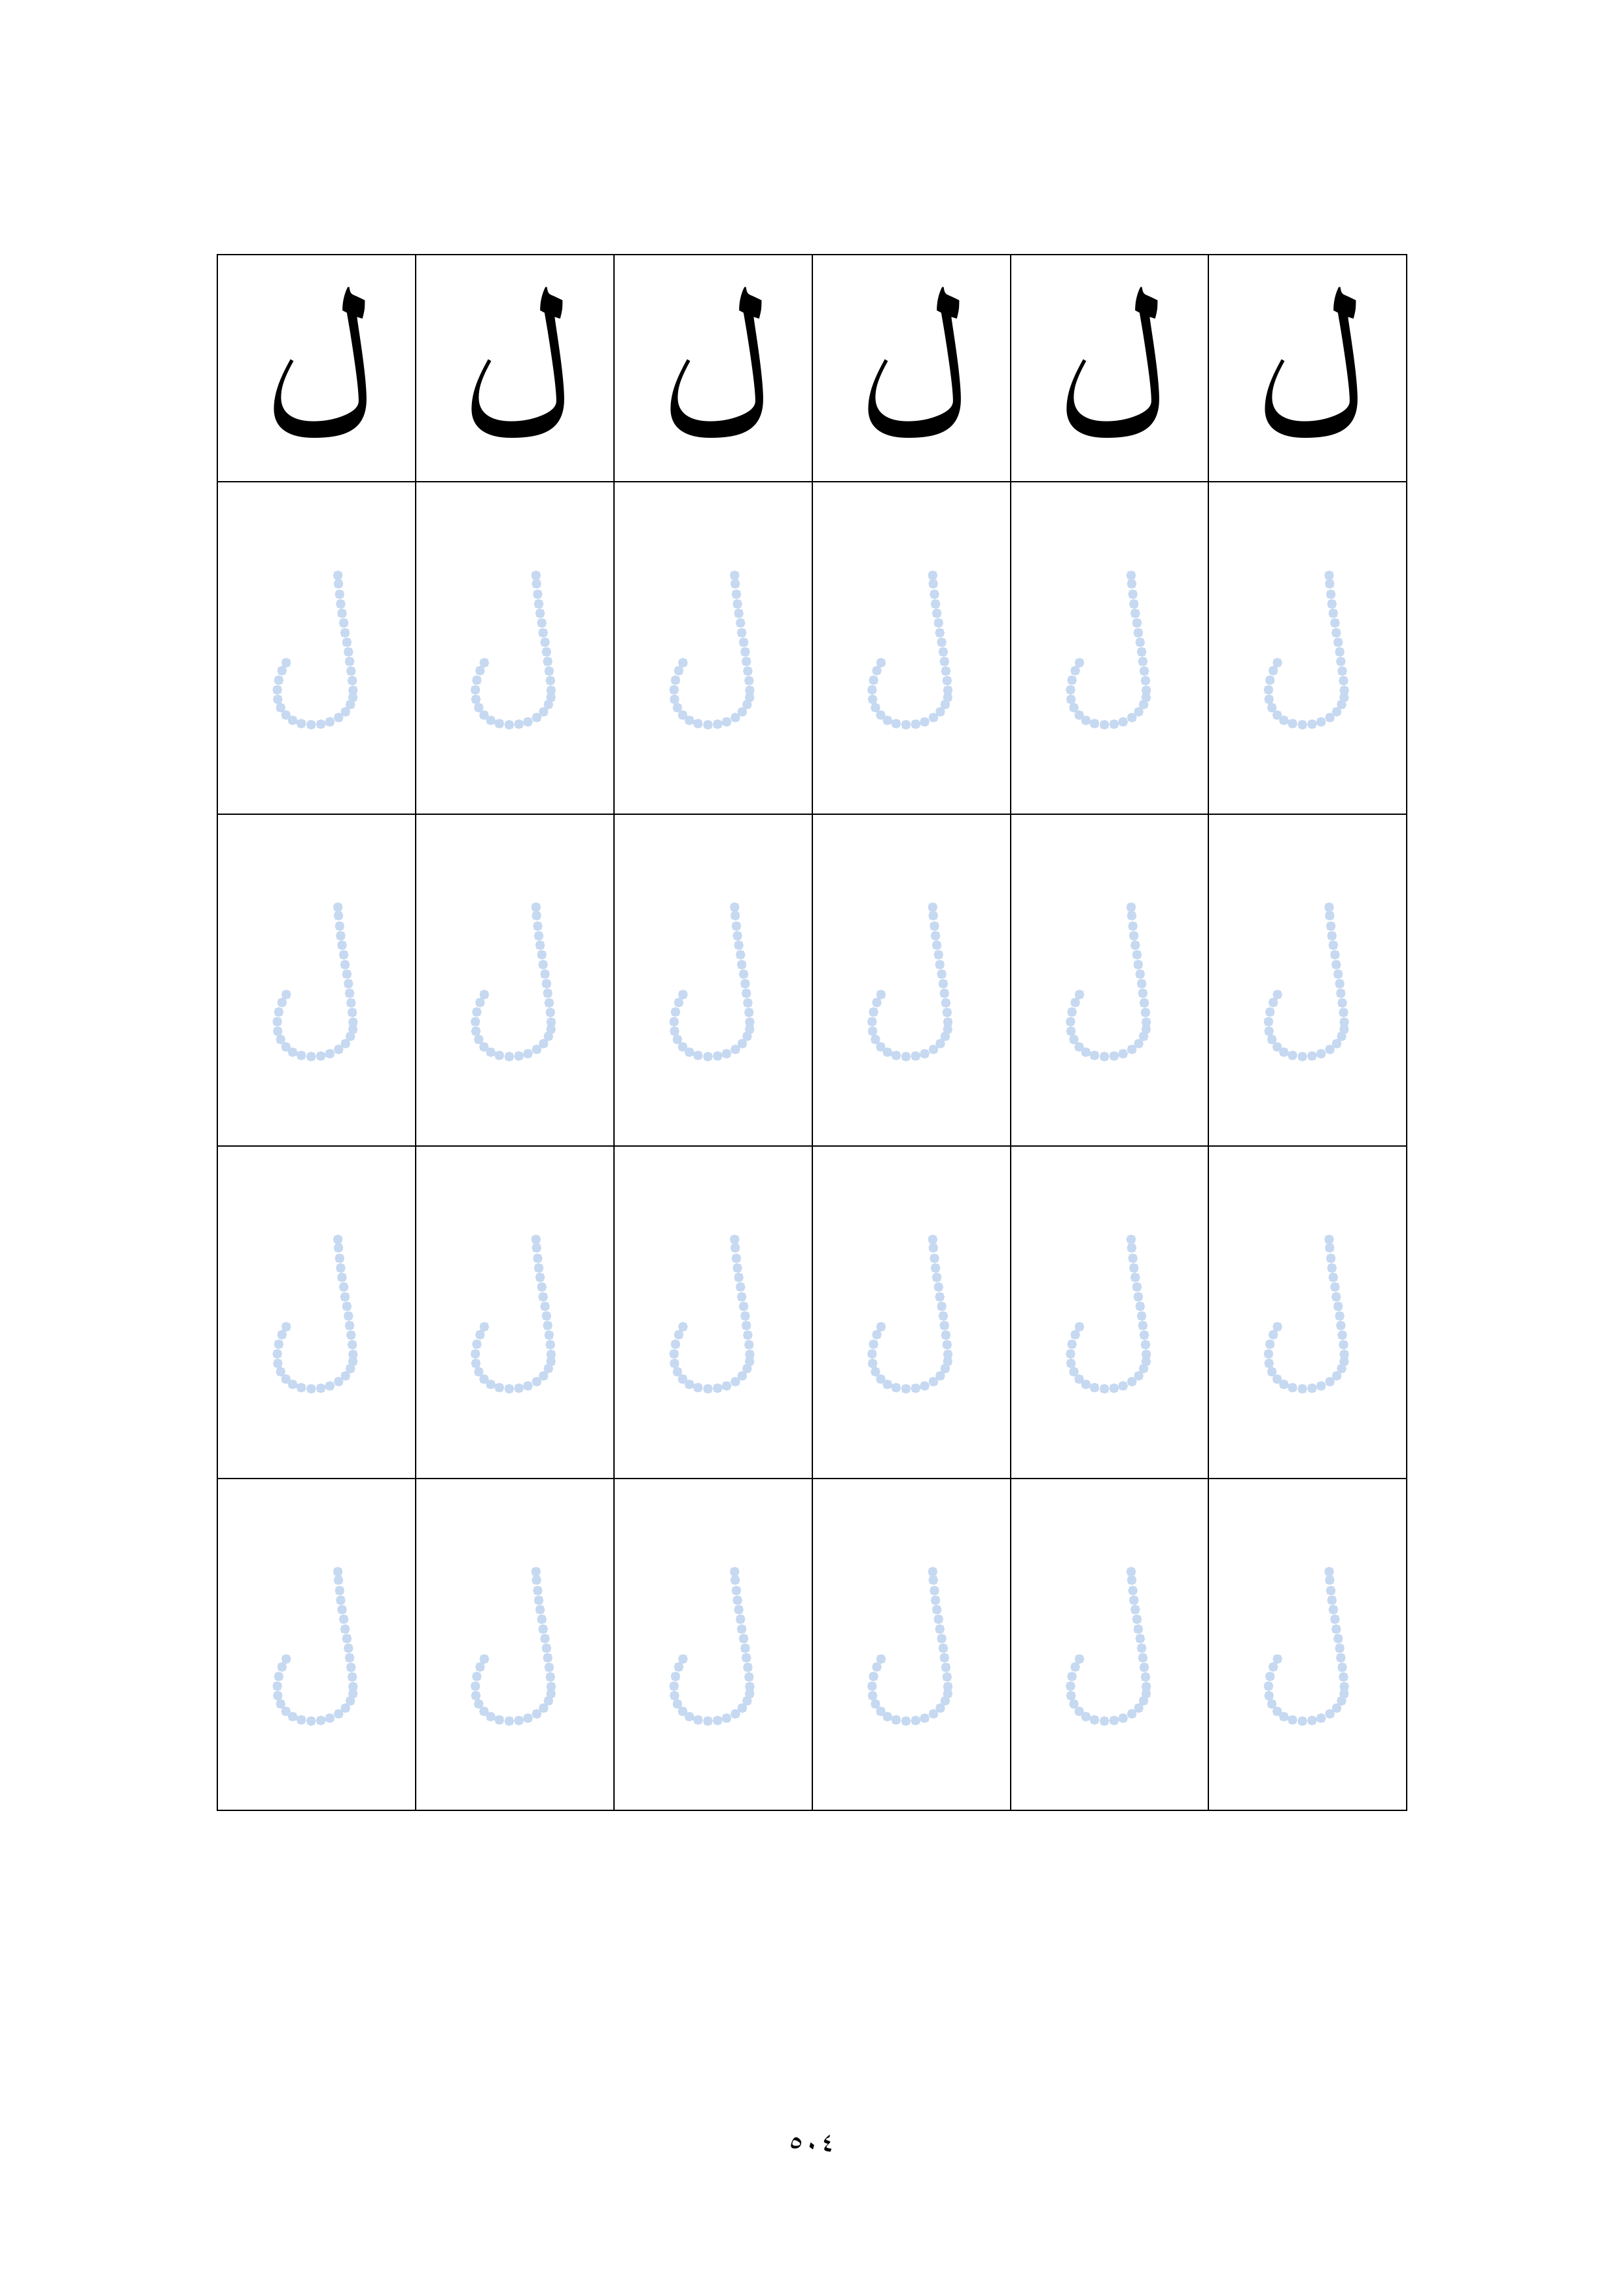 ل ل ل ل ل ل
ل ل ل ل ل ل
ل ل ل ل ل ل
ل ل ل ل ل ل
ل ل ل ل ل ل
٥٠٤